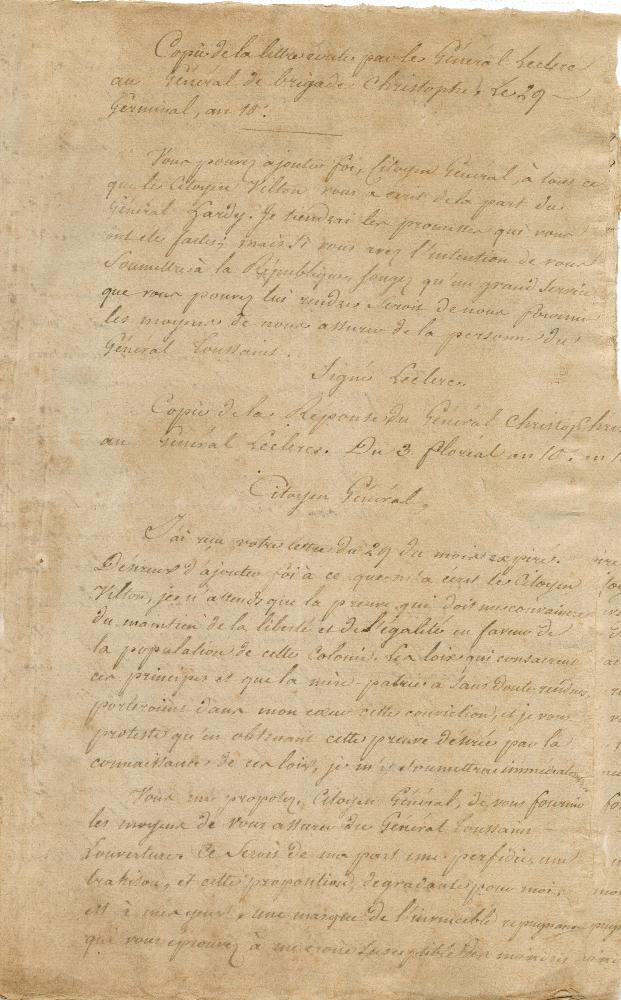 Copie de la lettre écrite par le Général Leclerc
au Général de brigade Christophe, Le 29
Germinal, an 10.
Vous pouvez ajouter foi, Citoyen Général, à tous ce
que le Citoyen Vilton vous a écrit de la part du
Général Hardy. Je tiendrai les promesses qui vous
ont été faites; mais si vous avez l'intention de vous
Soumettre à la République, songez qu'un grand Service
que vous pouvez lui rendre Seroit de nous fournir
les moyens de nous assurer de la personne du
Général Toussaint.
Signé Leclerc.
Copie de la Réponse du Général Christophe
au Général Leclerc. Du 3 floréal an 10.
Citoyen Général,
J'ai reçu votre lettre du 29 du mois expiré.
Désireux d'ajouter foi à ce que m'a écrit le Citoyen
Vilton, je n'attends que la preuve qui doit me convaincre
du maintien de la liberté et de l'égalité en faveur de
la population de cette Colonie. Les lois qui consacrent
ces principes et que la mère-patrie a sans doute rendues,
porteroient dans mon cœur cette conviction, et je vous
proteste qu'en obtenant cette preuve désirée par la
connaissance de ces lois, je m'y soumettrai immédiatement.
Vous me proposez, Citoyen Général, de vous fournir
les moyens de vous assurer du Général Toussaint
Louverture. Ce Seroit de ma part une perfidie, une
trahison, et cette proposition, dégradante pour moi,
est à mes yeux, une marque de l'invincible répugnance
que vous éprouvez à me croire Susceptible des moindres